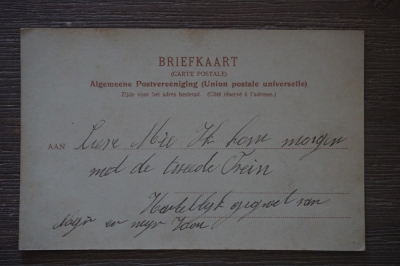 BRIEFKAART
(CARTE POSTALE)
Algemeene Postvereeniging (Union postale universelle)
Zijde voor het adres bestemd. (Côté réservé à l'adresse.)
AAN Lieve Mie Ik kom morgen
met de tweede Trein
Hartelijk gegroet van
en mijn